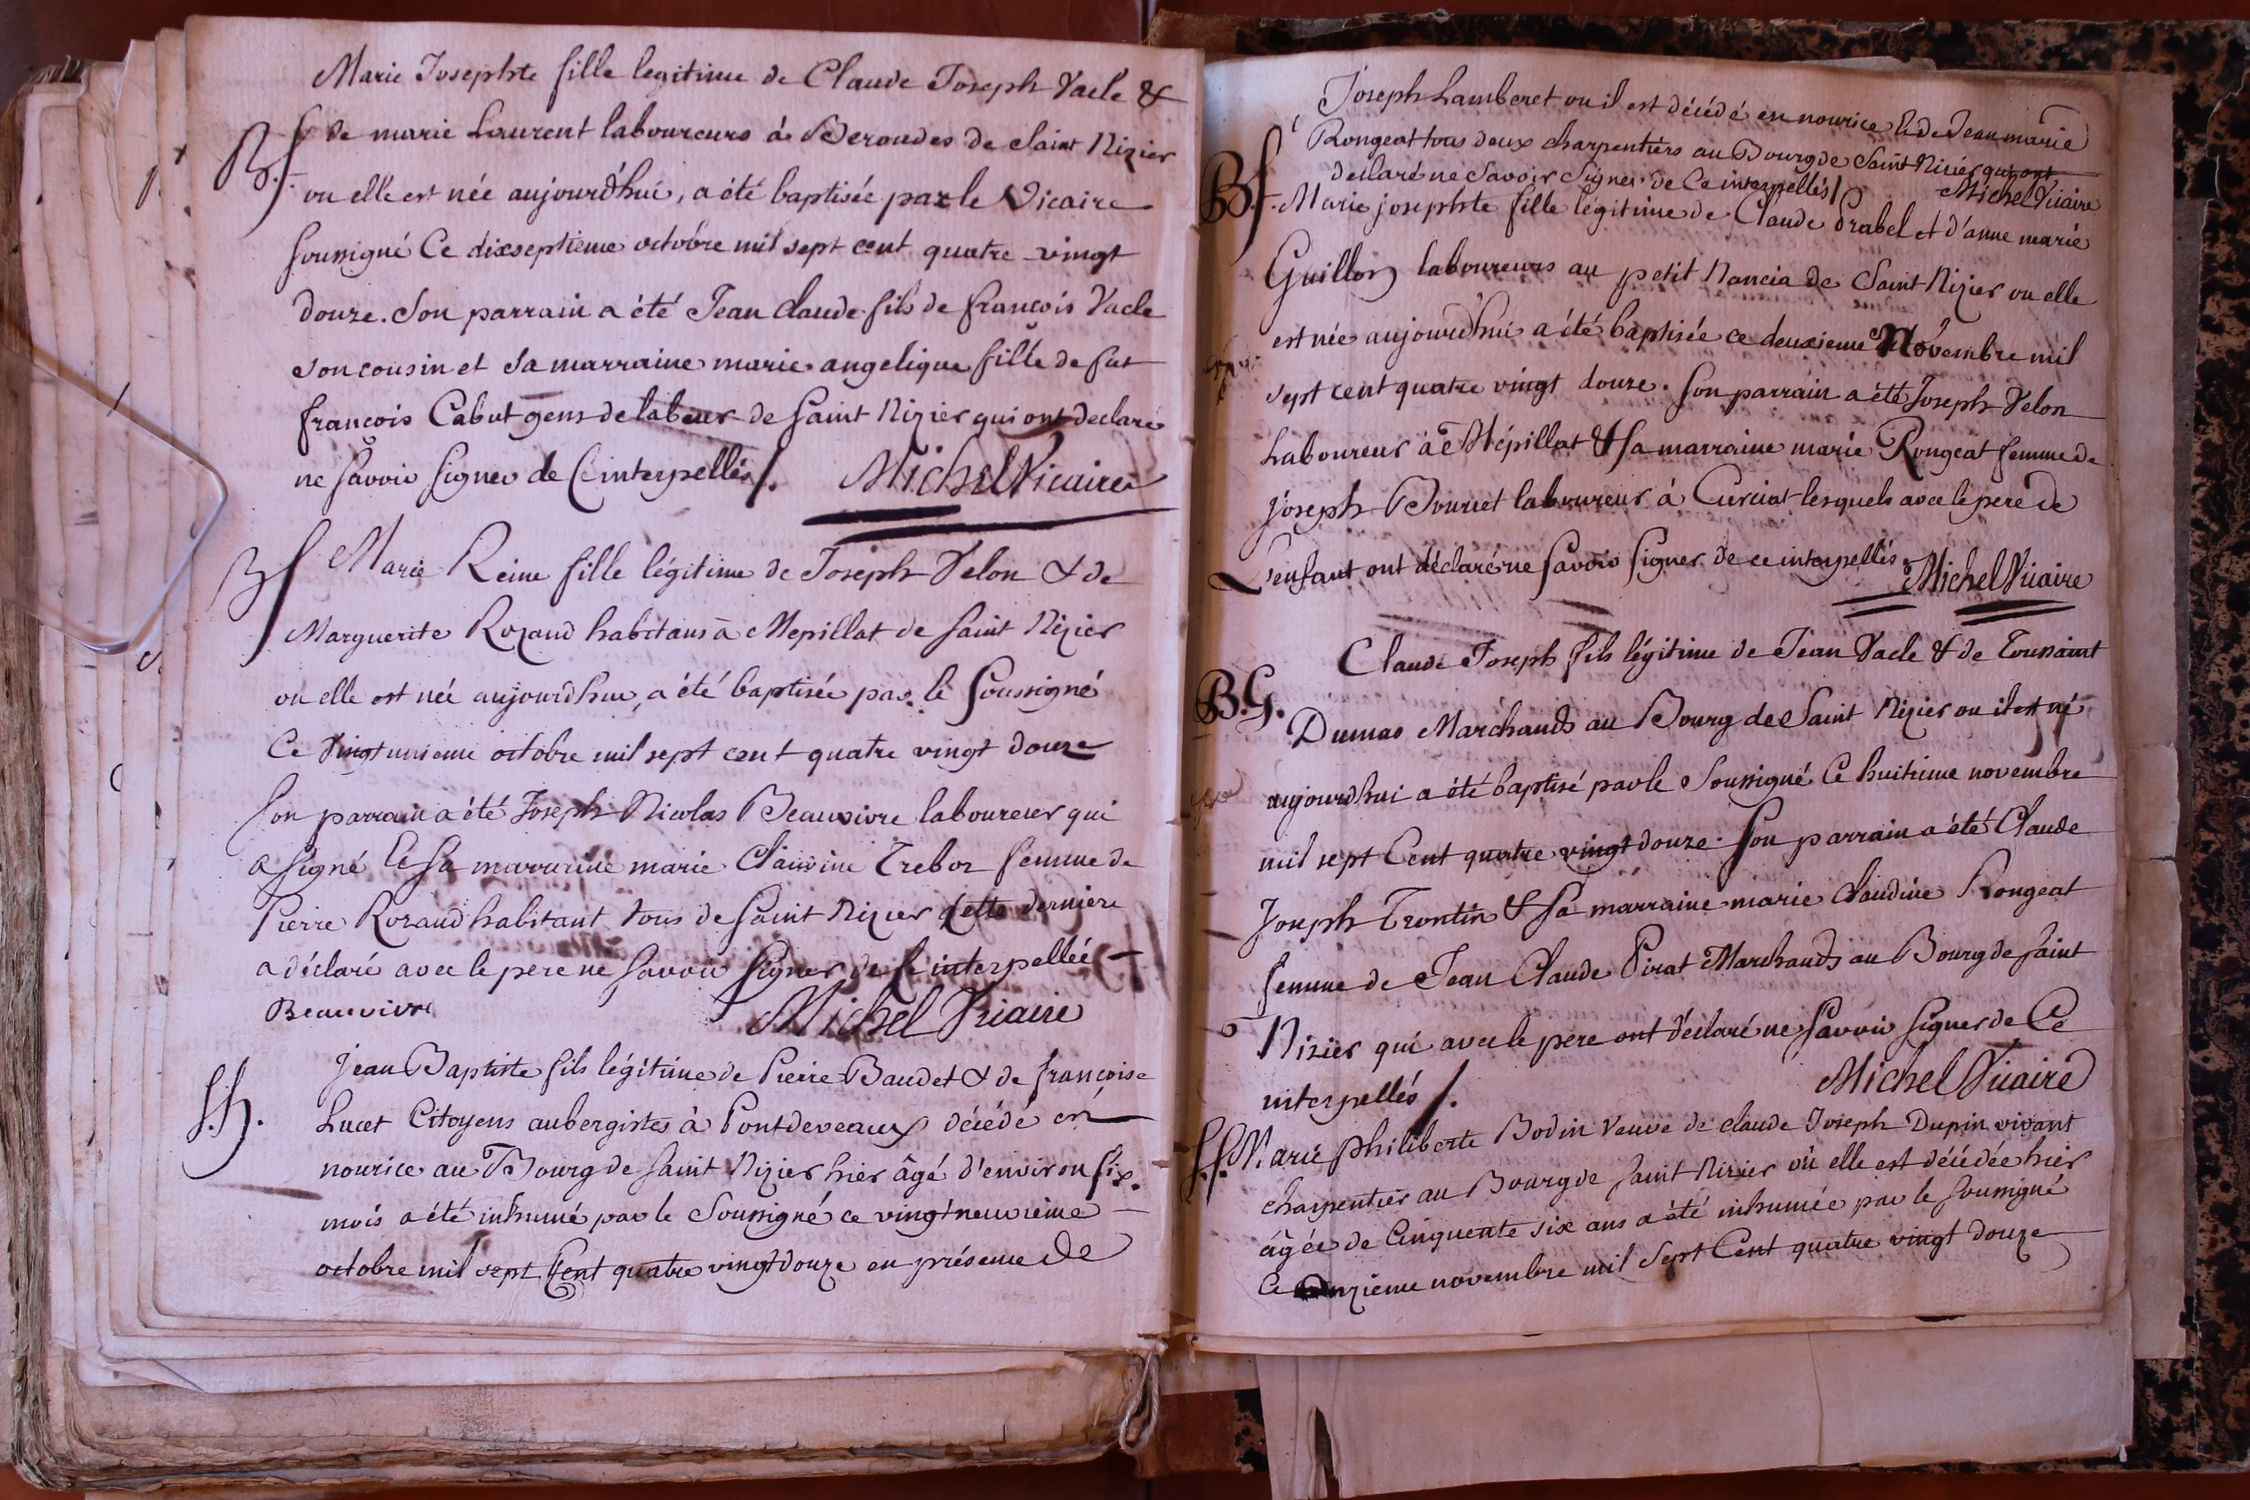 Marie Josephte fille legitime de Claude Joseph Vacle &
B.f. de marie Laurent laboureurs à Beroudes de Saint Nizier
ou elle est née aujourd'hui, a été baptisée par le Vicaire
soussigné Ce dixseptieme octobre mil sept cent quatre vingt
douze. Son parrain a été Jean Claude fils de françois Vacle
son cousin et sa marraine marie angelique fille de fut
françois Cabut gens de labeur de Saint Nizier qui ont declaré
ne savoir signer de Ce interpellés /. Michel Vicaire
Bf Marie Reine fille légitime de Joseph Velon & de
Marguerite Rozand habitans à Mepillat de Saint Nizier
ou elle est née aujourdhui, a été baptisée par le soussigné
Ce vingt unieme octobre mil sept cent quatre vingt douze
son parrain a été Joseph Nicolas Beauvivre laboureur qui
a signé Et sa marraine marie Claudine Treboz femme de
Pierre Rozand habitant tous de saint Nizier cette derniere
a déclaré avec le pere ne savoir signer de Ce interpellée
Beauvivre Michel Vicaire
Jean Baptiste fils légitime de Pierre Baudet & de françoise
S.h. Lucet Citoyens aubergistes à Pontdeveaux décédé en
nourice au Bourg de Saint Nizier hier âgé d'environ six
mois a été inhumé par le soussigné ce vingt neuvieme
octobre mil sept Cent quatre vingt douze en présence de
Joseph Lamberet ou il est décédé en nourice & de Jean marie
Rongeat tous deux charpentiers au Bourg de Saint Nizier qui ont
declaré ne savoir signer de Ce interpellés /. Michel Vicaire
B.f. Marie josephte fille légitime de Claude Prabel et d'anne marie
Guillon laboureurs au petit Nancia de Saint Nizier ou elle
est née aujourdhui a été baptisée ce deuxieme Novembre mil
sept cent quatre vingt douze. Son parrain a été Joseph Velon
Laboureur à Mépillat & sa marraine marie Rongeat femme de
joseph Bourcet laboureur à Curciat lesquels avec le pere de
L'enfant ont déclaré ne savoir signer de ce interpellés Michel Vicaire
Claude Joseph fils légitime de Jean Vacle & de Toussaint
B.G. Dumas Marchands au Bourg de Saint Nizier ou il est né
aujourdhui a été baptisé par le soussigné Ce huitieme novembre
mil sept Cent quatre vingt douze. Son parrain a été Claude
Joseph Trontin & sa marraine marie Claudine Rongeat
femme de Jean Claude Pirat Marchands au Bourg de saint
Nizier qui avec le pere ont déclaré ne savoir signer de Ce
interpellés /. Michel Vicaire
S.f. Marie philiberte Bodin Veuve de claude Joseph Dupin vivant
charpentier au Bourg de saint Nizier où elle est décédée hier
âgée de Cinquante six ans a été inhumée par le soussigné
Ce onzieme novembre mil Sept Cent quatre vingt douze